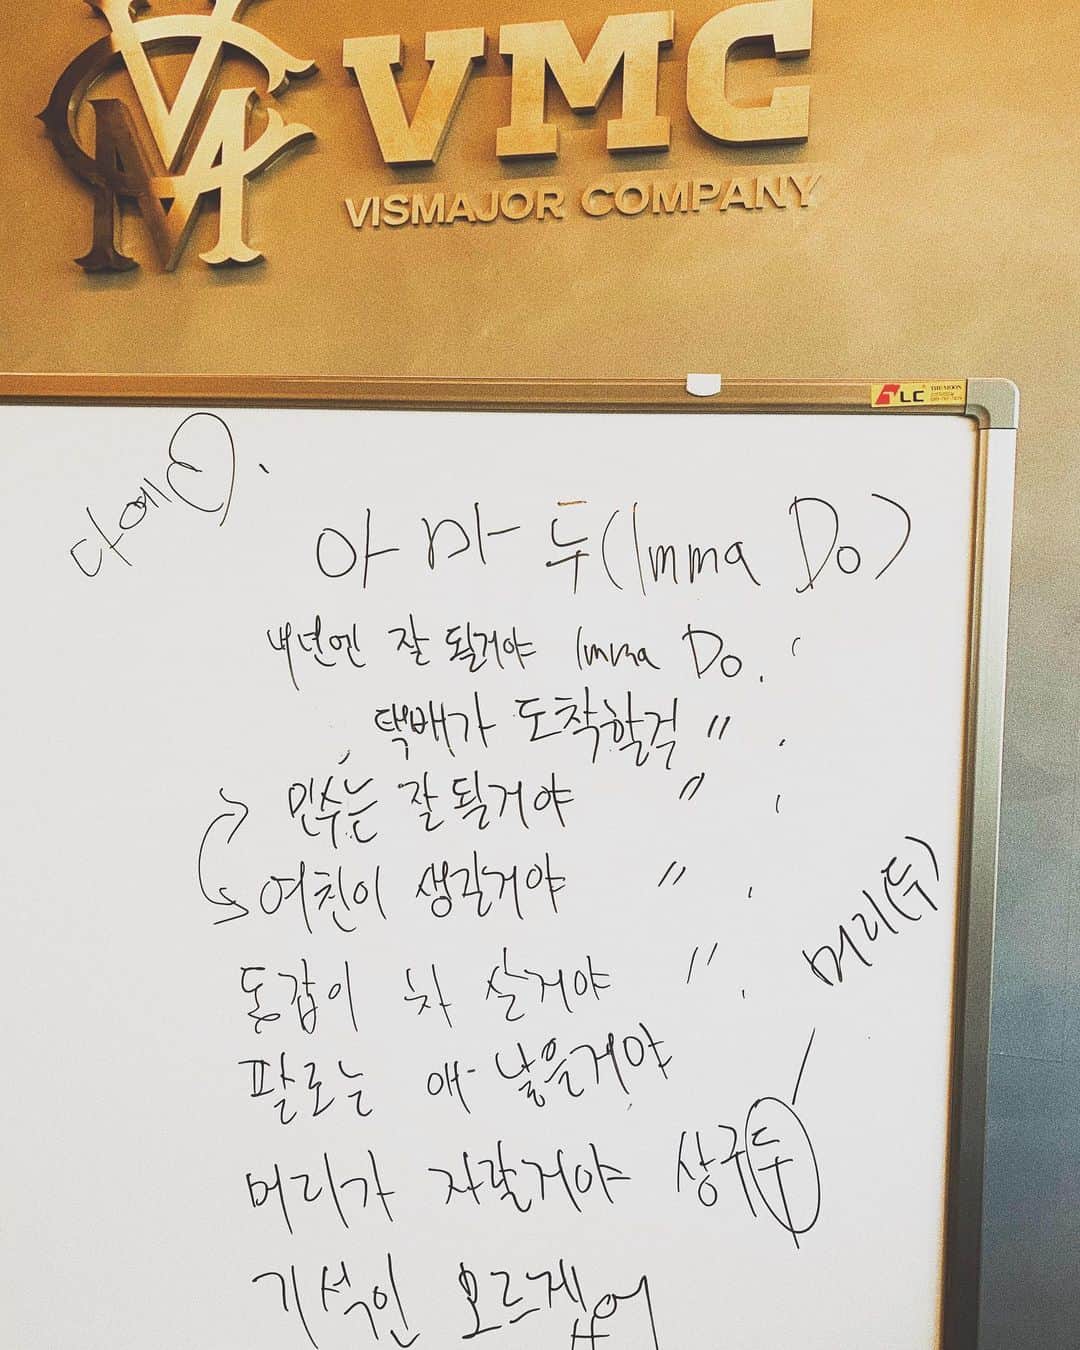 VMC
VISMAJOR COMPANY
LC
다예
아마두(Imma Do)
내년엔 잘 될거야 Imma Do.
택배가 도착할걱 〃
민수는 잘 될거야 〃
여친이 생길거야 〃
동갑이 차 살거야 〃
머리(두)
팔로는 애 낳을거야
머리가 자랄거야 상구두
기석인 모르겠어